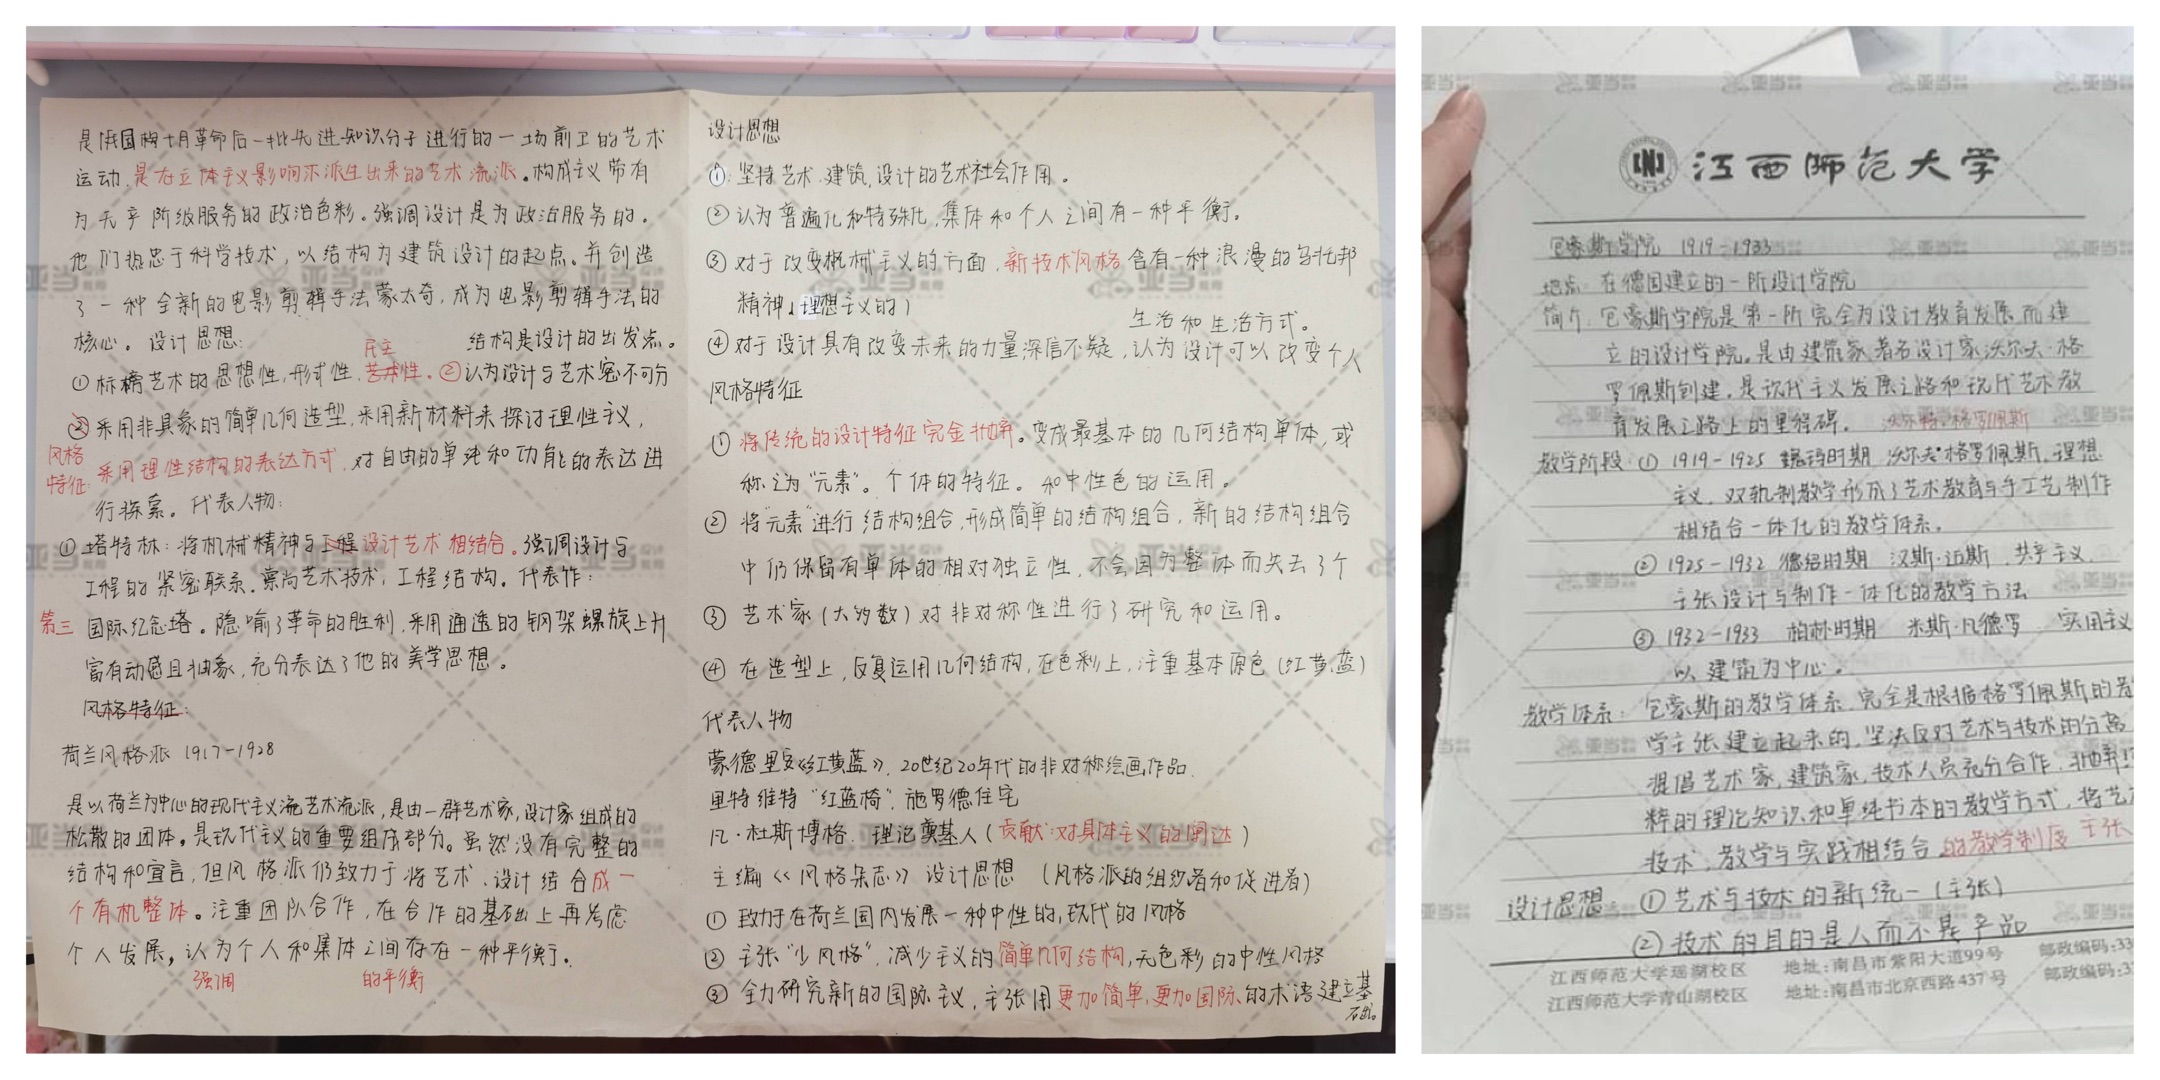 是俄国十月革命后一批先进知识分子进行的一场前卫的艺术
运动,是在立体主义影响下派生出来的艺术流派。构成主义带有
为无产阶级服务的政治色彩。强调设计是为政治服务的。
他们热忠于科学技术,以结构为建筑设计的起点。并创造
了一种全新的电影剪辑手法蒙太奇,成为电影剪辑手法的
核心。设计思想: 结构是设计的出发点。
民主
①标榜艺术的思想性,形式性,艺术性。②认为设计与艺术密不可分
③采用非具象的简单几何造型,采用新材料来探讨理性主义,
风格
特征:采用理性结构的表达方式,对自由的单纯和功能的表达进
行探索。代表人物:
①塔特林:将机械精神与工程设计艺术相结合。强调设计与
工程的紧密联系。崇尚艺术技术,工程结构。代表作:
第三国际纪念塔。隐喻了革命的胜利,采用通透的钢架螺旋上升
富有动感且抽象,充分表达了他的美学思想。
风格特征:
荷兰风格派 1917-1928
是以荷兰为中心的现代主义流艺术流派,是由一群艺术家,设计家组成的
松散的团体。是现代主义的重要组成部分。虽然没有完整的
结构和宣言,但风格派仍致力于将艺术、设计结合成一
个有机整体。注重团队合作,在合作的基础上再考虑
个人发展,认为个人和集体之间存在一种平衡。
强调 的平衡
设计思想
①:坚持艺术.建筑,设计的艺术社会作用。
②认为普遍化和特殊化,集体和个人之间有一种平衡。
③对于改变机械主义的方面,新技术风格含有一种浪漫的乌托邦
精神(理想主义的)
生活和生活方式。
④对于设计具有改变未来的力量深信不疑,认为设计可以改变个人
风格特征
①将传统的设计特征完全抛弃。变成最基本的几何结构单体,或
称之为“元素”。个体的特征。和中性色的运用。
②将“元素”进行结构组合,形成简单的结构组合,新的结构组合
中仍保留有单体的相对独立性,不会因为整体而失去了个
③艺术家(大多数)对非对称性进行了研究和运用。
④在造型上,反复运用几何结构,在色彩上,注重基本原色(红黄蓝)
代表人物
蒙德里安《红黄蓝》,20世纪20年代的非对称绘画作品
里特维特“红蓝椅”.施罗德住宅
凡·杜斯博格.理论奠基人(贡献:对具体主义的阐达)
主编《风格杂志》设计思想 (风格派的组织者和促进者)
①致力于在荷兰国内发展一种中性的,现代的风格
②主张“少风格”,减少主义的简单几何结构,无色彩的中性风格
③全力研究新的国际主义,主张用更加简单,更加国际的术语建立基
础。
江西师范大学
包豪斯学院 1919-1933
地点:在德国建立的一所设计学院
简介:包豪斯学院是第一所完全为设计教育发展而建
立的设计学院。是由建筑家,著名设计家沃尔夫·格
罗佩斯创建,是现代主义发展之路和现代艺术教
育发展之路上的里程碑。沃尔特·格罗佩斯
教学阶段:①1919-1925 魏玛时期 沃尔夫·格罗佩斯.理想
主义.双轨制教学形成了艺术教育与手工艺制作
相结合一体化的教学体系。
②1925-1932 德绍时期 汉斯·迈斯.共产主义.
主张设计与制作一体化的教学方法
③1932-1933 柏林时期 米斯·凡德罗 实用主义
以建筑为中心。
教学体系:包豪斯的教学体系完全是根据格罗佩斯的
学主张建立起来的,坚决反对艺术与技术的分离
提倡艺术家,建筑家,技术人员充分合作,抛弃
粹的理论知识和单纯书本的教学方式,将艺
技术,教学与实践相结合的教学制度 主张
设计思想:①艺术与技术的新统一(主张)
②技术的目的是人而不是产品
江西师范大学瑶湖校区 地址:南昌市紫阳大道99号 邮政编码:33
江西师范大学青山湖校区 地址:南昌市北京西路437号 邮政编码:3